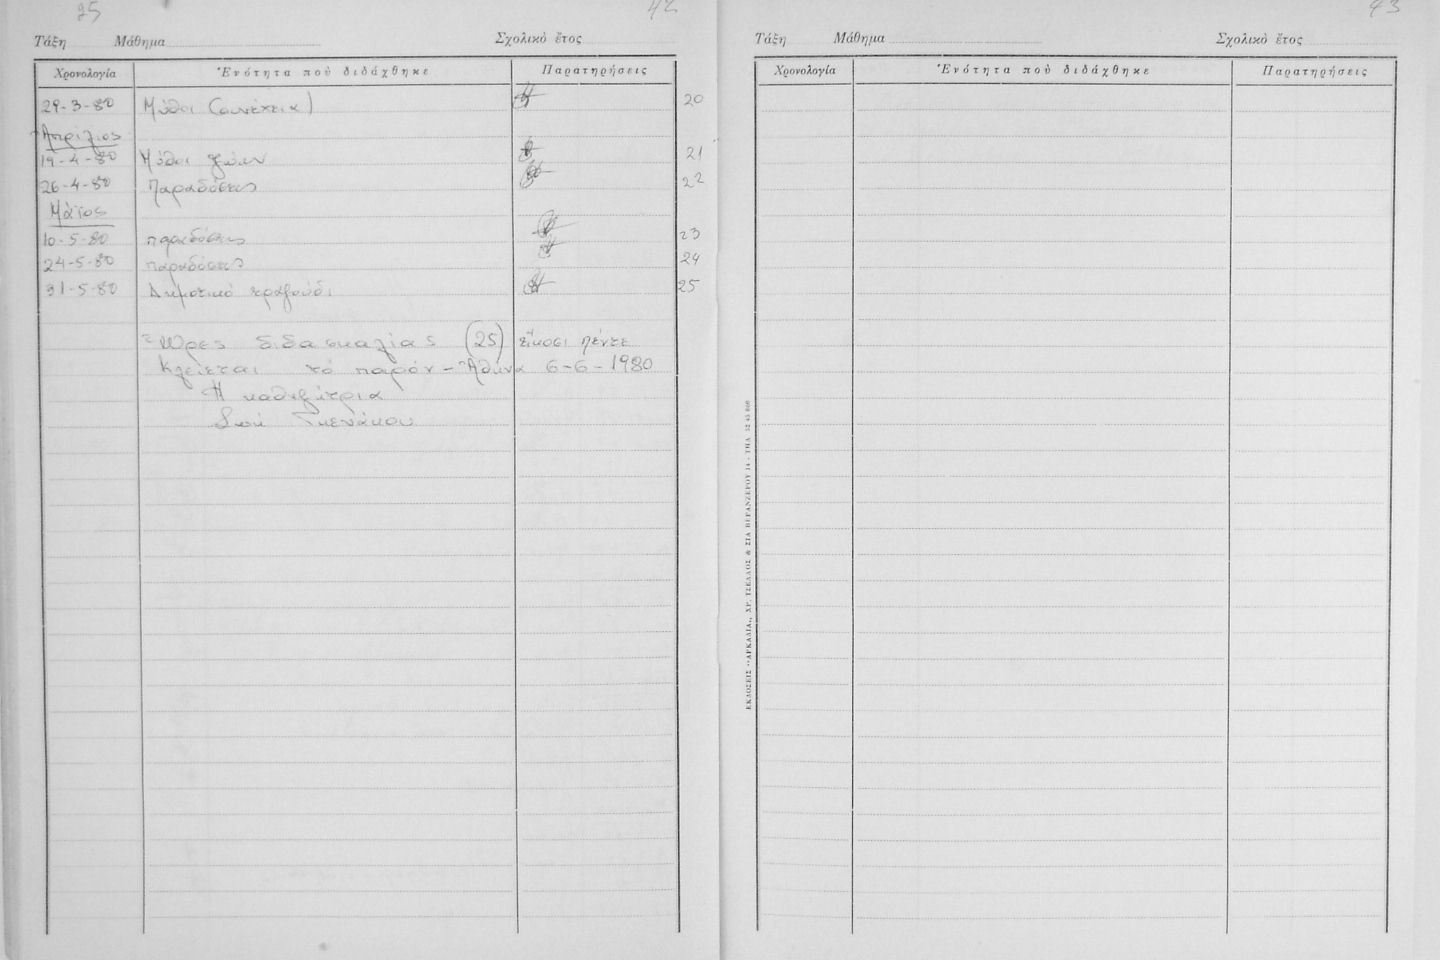 25
42
Τάξη Μάθημα Σχολικὸ ἔτος
Χρονολογία Ἑνότητα ποὺ διδάχθηκε Παρατηρήσεις
29-3-80 Μῦθοι (συνέχεια) 20
Ἀπρίλιος
19-4-80 Μῦθοι ζώων 21
26-4-80 Παραδόσεις 22
Μάϊος
10-5-80 παραδόσεις 23
24-5-80 παραδόσεις 24
31-5-80 Δημοτικό τραγούδι 25
Ὧρες διδασκαλίας (25) εἴκοσι πέντε
Κλείεται τό παρόν - Ἀθήνα 6-6-1980
Ἡ καθηγήτρια
43
Τάξη Μάθημα Σχολικὸ ἔτος
Χρονολογία Ἑνότητα ποὺ διδάχθηκε Παρατηρήσεις
ΕΚΔΟΣΕΙΣ «ΑΡΚΑΔΙΑ», ΧΡ. ΤΣΕΛΛΟΣ & ΣΙΑ ΒΕΡΑΝΖΕΡΟΥ 14 - ΤΗΛ. 52 45 806